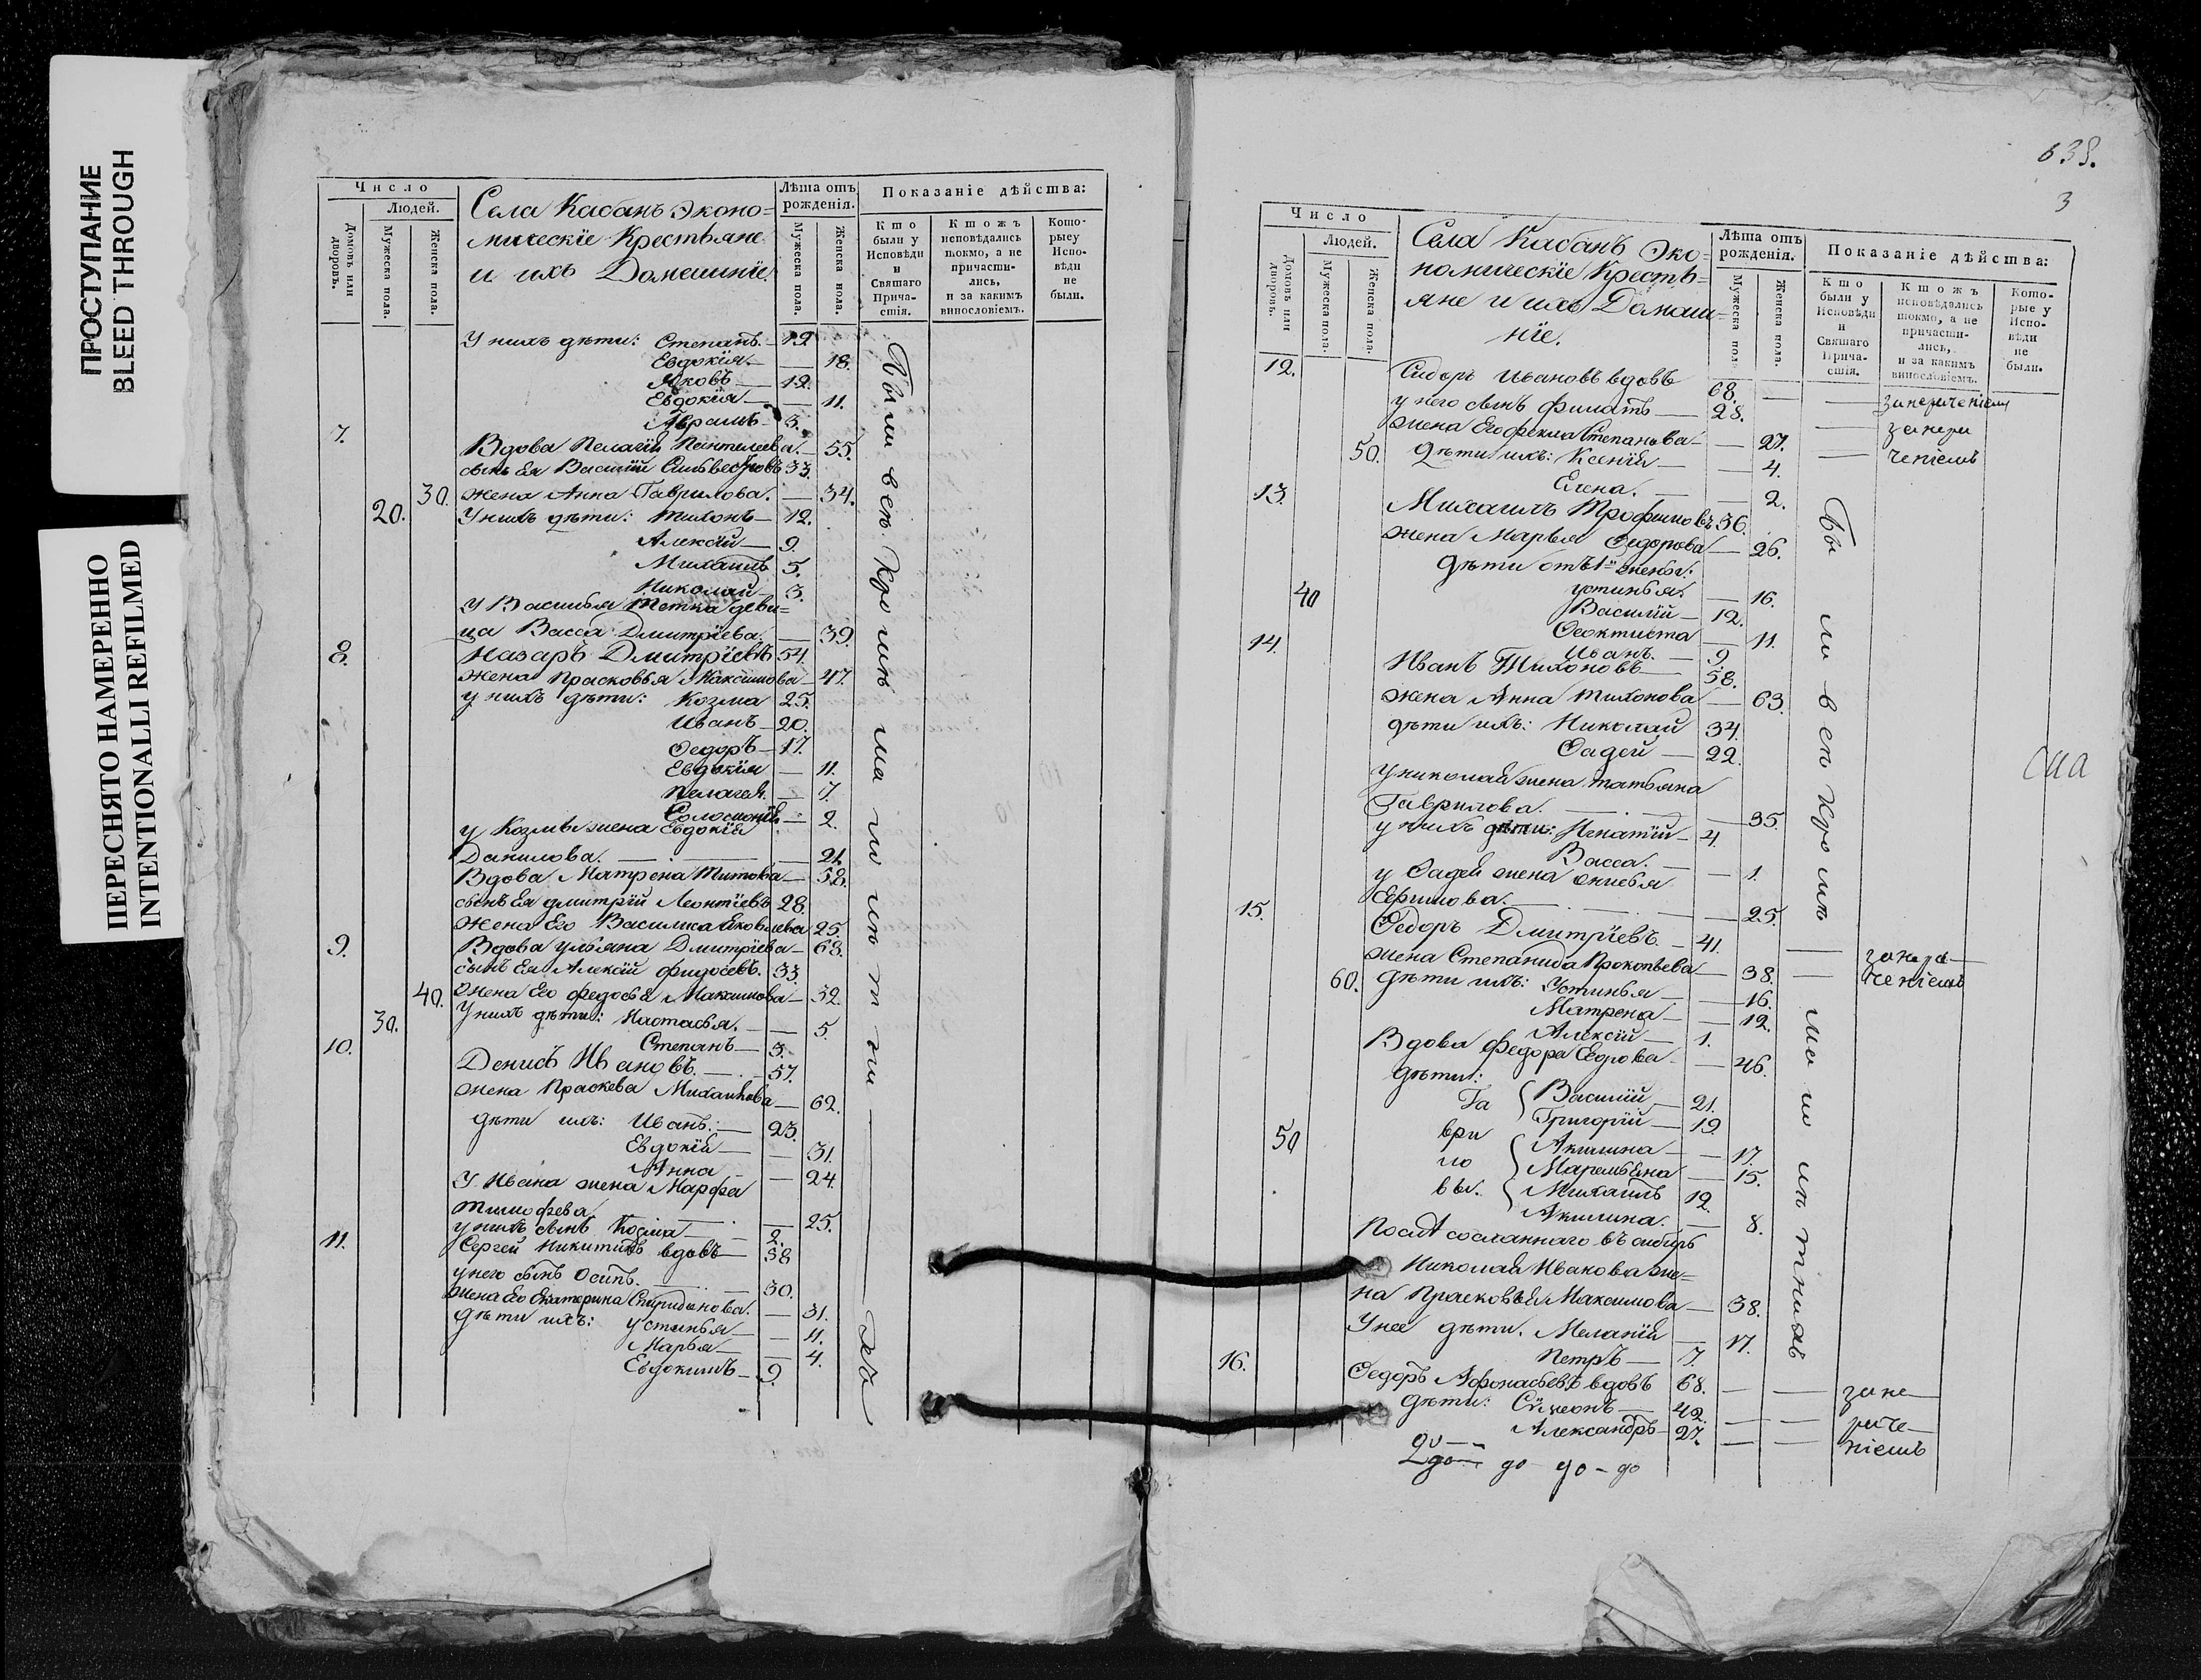 ПРОСТУПАНИЕ
BLEED THROUGH
ПЕРЕСНЯТО НАМЕРЕННО
INTENTIONALLI REFILMED
Число
Людей.
Домовъ или дворовъ.
Мужеска пола.
Женска пола.
Села Кабанъ Эконо=
мическіе Крестьяне
и ихъ Домашніе
Лѣта отъ рожденія.
Мужеска пола.
Женска пола.
Показаніе дѣйства:
Кто были у Исповѣди и Святаго Причастія.
Ктожъ исповѣдались токмо, а не причастились, и за какимъ винословіемъ.
Которые у Исповѣди не были.
У нихъ дѣти: Степанъ 19
Евдокія 18.
Яковъ 12.
Евдокія 11.
Абрамъ 3.
7. Вдова Пелагія Пантелеева 55.
сынъ Ея Василій Сильвестровъ 33.
30. жена Анна Гаврилова. 34.
20. У нихъ дѣти: Тихонъ 12.
Алексѣй 9.
Михаилъ 5.
Николай 3.
У Василья тетка деви=
ца Васса Дмитріева 39.
8. Назаръ Дмитріевъ 54.
жена Прасковья Максимова 47.
у нихъ дѣти: Козма 25.
Иванъ 20.
Ѳедоръ 17.
Евдокія 11.
Пелагея 7.
Соломонія 2.
у Козмы жена Евдокія
Данилова. 21.
Вдова Матрена Титова 58.
сынъ Ея Дмитрій Леонтіевъ 28.
жена Его Василиса Яковлева 25.
9. Вдова Ульяна Дмитріева 68.
сынъ Ея Алексѣй Фидосеевъ. 33.
40. Жена Его Федосья Максимова 32.
30. У нихъ дѣти: Настасья. 5
Степанъ 3.
10. Денисъ Ивановъ. 57.
жена Праскева Михаилова 62.
дѣти ихъ: Иванъ. 23.
Евдокія 31.
Анна 24.
У Ивана жена Марфа
Тимофева 25.
у нихъ сынъ Козма 2.
11. Сергей Никитинъ вдовъ 58
у него сынъ Осипъ. 30.
жена Его Екатерина Спиридонова. 31.
дѣти ихъ: Устинья 11.
Марья 4.
Евдокимъ 9.
638.
3
Число
Людей.
Домовъ или дворовъ.
Мужеска пола.
Женска пола.
Села Кабанъ Эко=
номическіе Кресть=
яне и ихъ Домаш=
ніе.
Лѣта отъ рожденія.
Мужеска пола
Женска пола.
Показаніе дѣйства:
Кто были у Исповѣди и Святаго Причастія.
Ктожъ исповѣдались токмо, а не причастились, и за какимъ винословіемъ.
Которые у Исповѣди не были.
12. Сидоръ Ивановъ вдовъ 68.
у него сынъ Филатъ 28.
жена Его Фекла Степанова 27.
50. Дѣти ихъ: Ксенія 4.
Елена. 2.
13. Михаилъ Трофимовъ 36.
жена Марья Ѳедорова 26.
дѣти отъ 1й жены:
40 Устинья. 16.
Василій 12.
Ѳеоктиста 11.
Иванъ. 9.
14. Иванъ Тихоновъ 58.
жена Анна Тихонова 63.
дѣти ихъ: Николай 34.
Ѳадей 22.
у Николая жена Татьяна
Гаврилова. 35.
у нихъ дѣти: Игнатій 4
Васса. 1.
у Ѳадея жена
Ефимова. 25.
15. Ѳедоръ Дмитріевъ 41.
жена Степанида Прокопьева 38.
60. дѣти ихъ: Устинья 16.
Матрена 12.
Алексѣй 1.
Вдова Федора Егорова 46.
дѣти:
Гаври
ловы.
Василій 21.
Григорій 19.
50 Акилина 17.
Маремьяна 15.
Михаилъ 12.
Акилина. 8.
Послѣ сосланнаго въ сибирь
Николая Ивакова же=
на Прасковья Максимова 38.
У нее дѣти. Меланія 17.
Петръ 7.
16. Ѳедоръ Афонасьевъ вдовъ 68.
дѣти: Сѵмеонъ 42.
Александръ 27.
до до - до - до